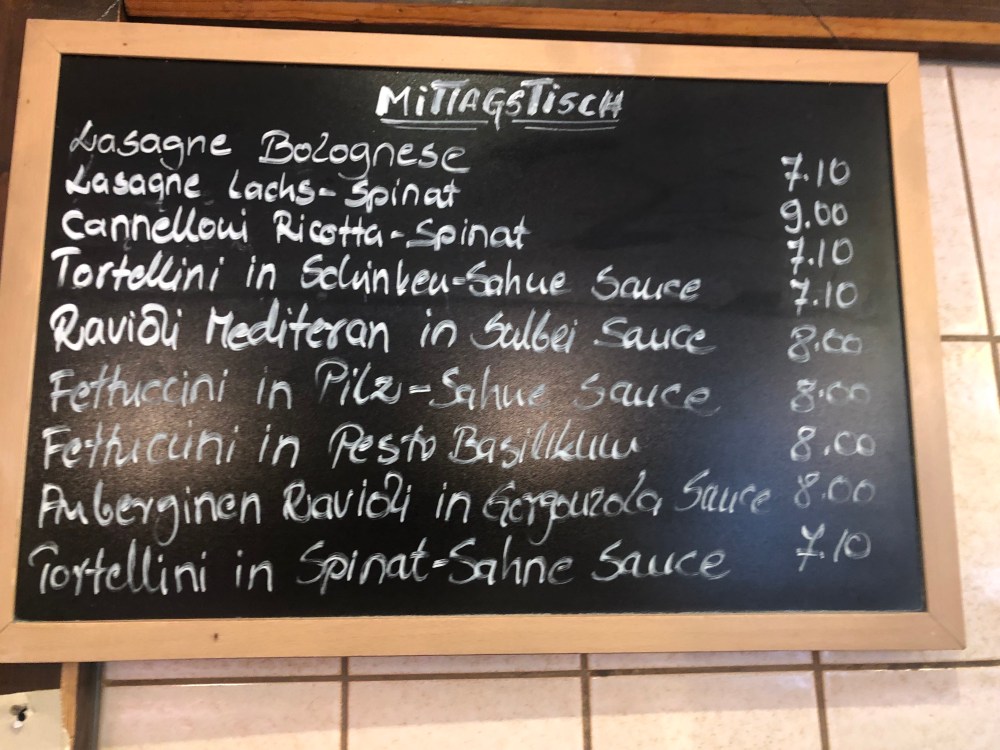 MiTTAGSTiSCH
Lasagne Bolognese 7.10
Lasagne Lachs-Spinat 9.00
Cannelloni Ricotta-Spinat 7.10
Tortellini in Schinken-Sahne Sauce 7.10
Ravioli Mediteran in Salbei Sauce 8.00
Fettuccini in Pilz-Sahne Sauce 8.00
Fettuccini in Pesto Basilikum 8.00
Auberginen Ravioli in Gorgonzola Sauce 8.00
Tortellini in Spinat-Sahne Sauce 7.10